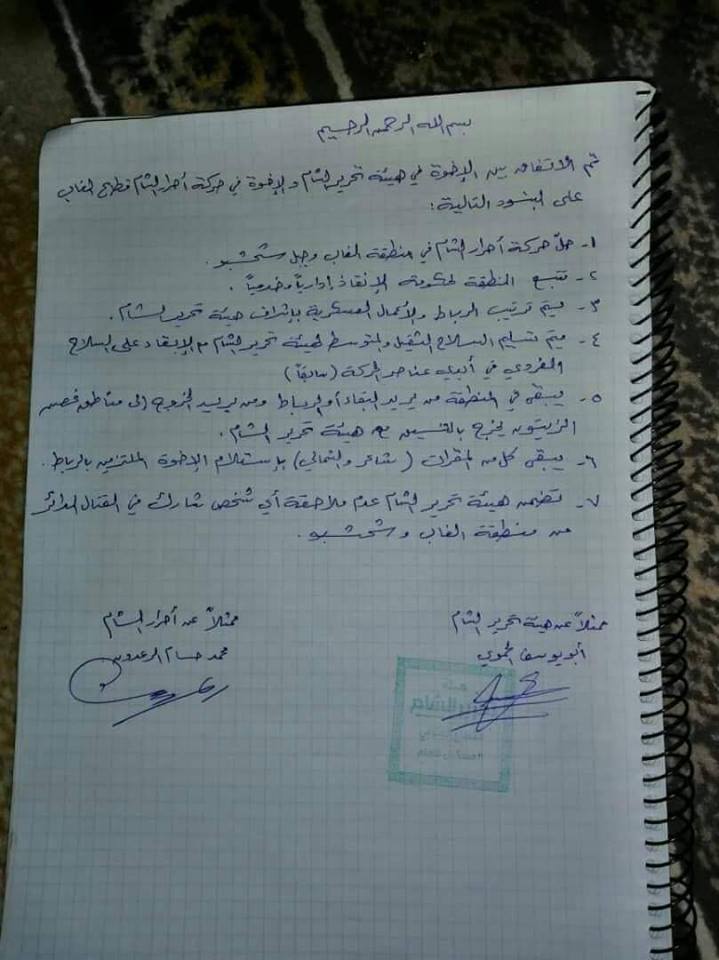 بسم الله الرحمن الرحيم
تم الاتفاق بين الإخوة في هيئة تحرير الشام والإخوة في حركة أحرار الشام قطاع الغاب
على البنود التالية:
١- حلّ حركة أحرار الشام في منطقة الغاب وجبل شحشبو.
٢- تتبع المنطقة لحكومة الإنقاذ إدارياً وخدمياً.
٣- يتم ترتيب الرباط والأعمال العسكرية بإشراف هيئة تحرير الشام.
٤- يتم تسليم السلاح الثقيل والمتوسط لهيئة تحرير الشام مع الإبقاء على السلاح
الفردي في أيدي عناصر الحركة (سابقاً)
٥- يبقى في المنطقة من يريد البقاء أو الرباط ومن يريد الخروج إلى مناطق غصن
الزيتون يخرج بالتنسيق مع هيئة تحرير الشام.
٦- يبقى كل من المقرات (شاعر والشمالي) بإستلام الإخوة الملتزمين بالرباط.
٧- تضمن هيئة تحرير الشام عدم ملاحقة أي شخص شارك في القتال الدائر
من منطقة الغاب وشحشبو.
ممثلاً عن هيئة تحرير الشام
أبو يوسف الحموي
ممثلاً عن أحرار الشام
محمد حسام
هيئة
تحرير الشام